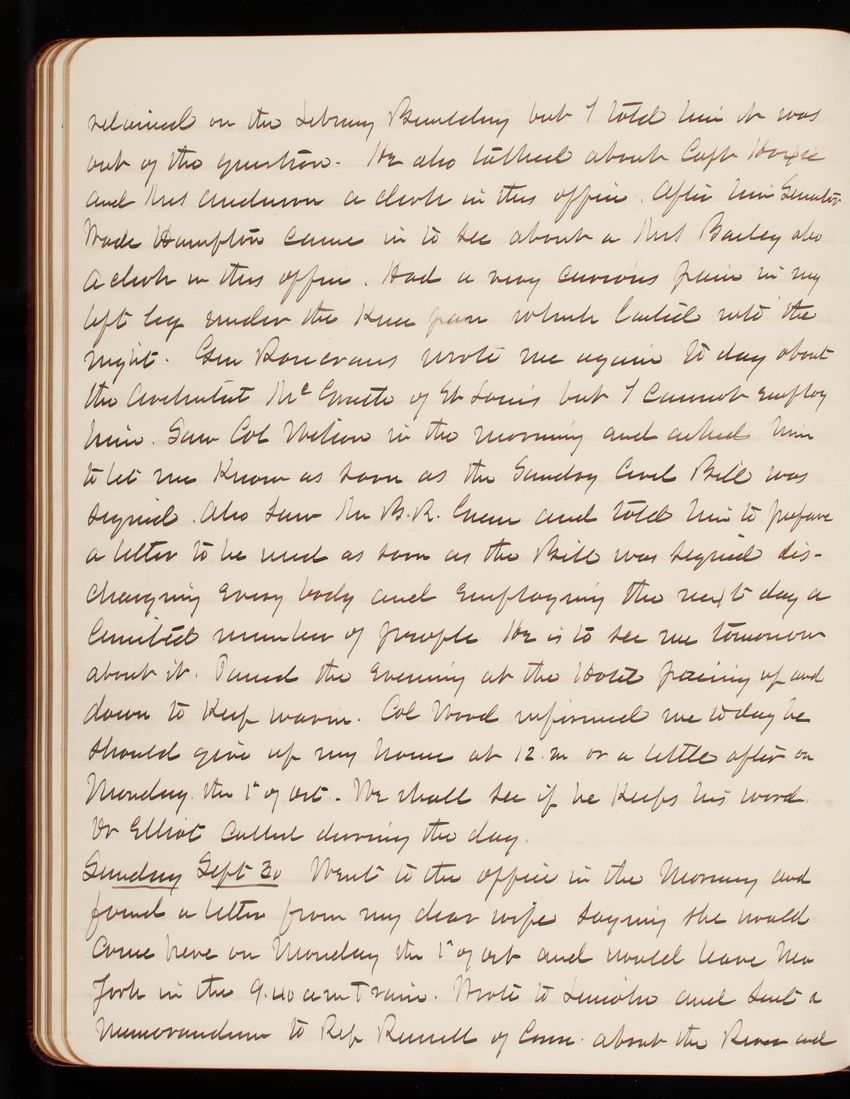 retained on the Library Building but I told him it was
out of the question. He also talked about Capt
and Mrs Anderson a clerk in this office. After him Senator
Wade Hampton came in to see about a Mrs Bailey also
a clerk in this office. Had a very curious pain in my
left leg under the Knee pan which lasted into the
night. Gen Rosecrans wrote me again to day about
the Architect McGrath of St Louis but I cannot employ
him. Saw Col Wilson in the morning and asked him
to let me Know as soon as the Sundry Civil Bill was
signed. Also saw Mr B.R. Green and told him to prepare
a letter to be used as soon as the Bill was signed dis-
charging every body and employing the next day a
limited number of people He is to see me tomorrow
about it. Passed the evening at the Hotel passing up and
down to Keep warm. Col Wood informed me today he
should give up my house at 12.m or a little after on
Monday the 1st of Oct. We shall see if he Keeps his word.
Dr Elliot called during the day.
Sunday Sept 30 Went to the office in the Morning and
found a letter from my dear wife saying she would
Come here on Monday the 1st of Oct and would leave New
York in the 9.40 am Train. Wrote to Lincoln and sent a
Memorandum to Rep Russell of Conn. about the River and